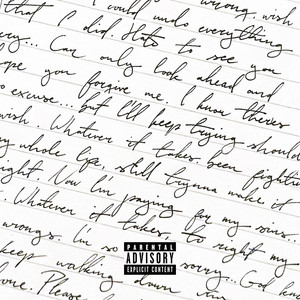 wrong, wish
that I could undo everything
I did. Hate to see you
cry... Can only look ahead and
hope you forgive me. I know theres
no excuse... but I'll keep trying should
wish. Whatever it takes, been fightin
my whole life, still trynna make it
right. Now I'm praying for my sins...
. Whatever it takes, to right my
wrongs. I'm so sorry. God
keep walking down
one. Please
PARENTAL
ADVISORY
EXPLICIT CONTENT